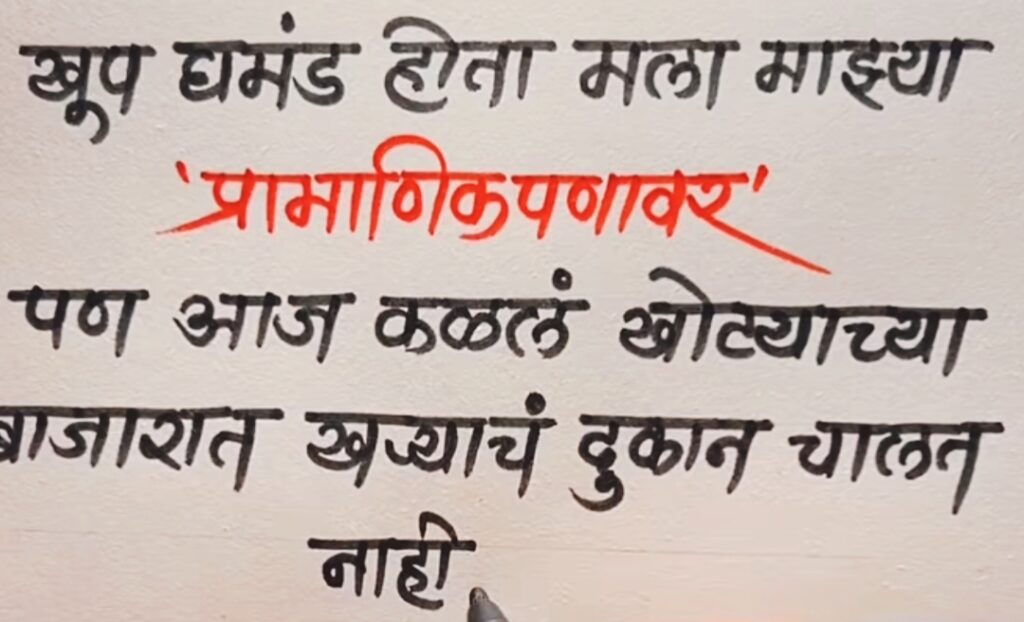 खूप घमंड होता मला माझ्या
'प्रामाणिकपणावर'
पण आज कळलं खोट्याच्या
बाजारात खऱ्याचं दुकान चालत
नाही